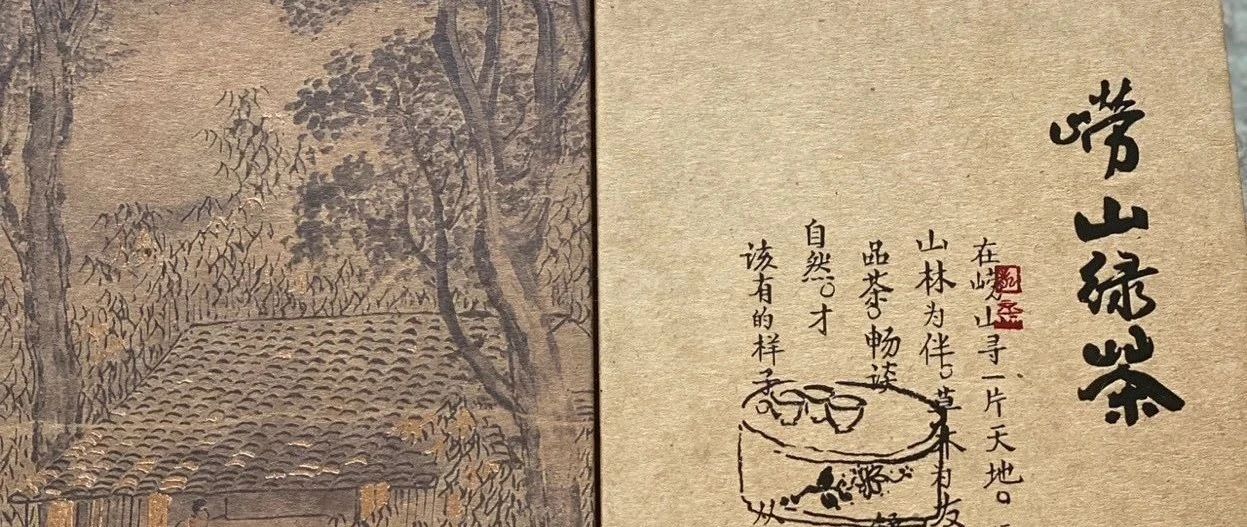 崂山绿茶
在崂山寻一片天地。
山林为伴。草木为友
品茶。畅读
自然。才
该有的样子。
从